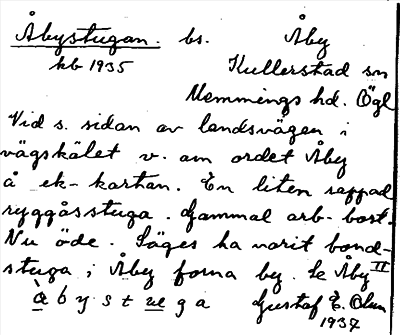 Åbystugan. bs. Åby
kb 1935 Kullerstad sn
Memmings hd. Ögl
Vid s. sidan av landsvägen i
vägskälet v. om ordet Åby
å ek-kartan. En liten rappad
ryggåsstuga. Gammal arb-bost.
Nu öde. Säges ha varit bond-
stuga i Åby forna by. Se Åby II
àbystuga Gustaf E. Olun
1937